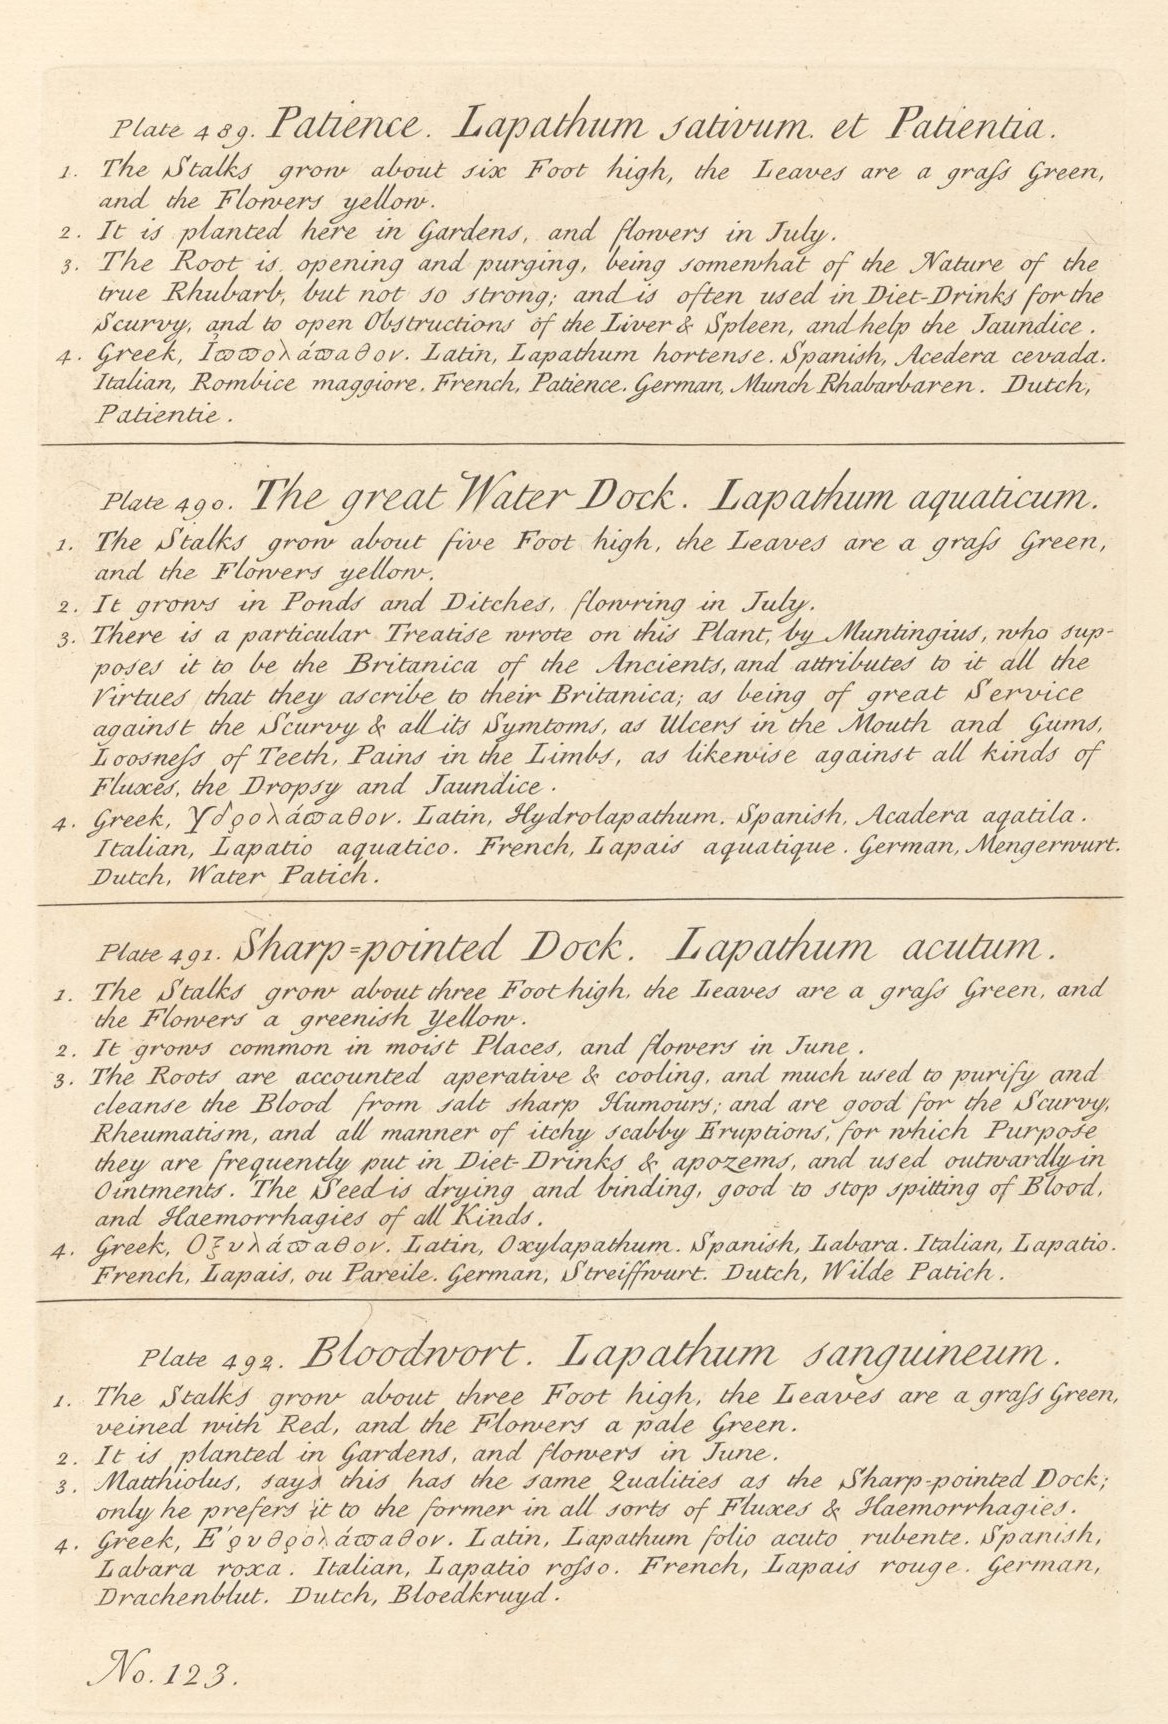 Plate 489. Patience. Lapathum sativum. et Patientia.
1. The Stalks grow about six Foot high, the Leaves are a graſs Green,
and the Flowers yellow.
2. It is planted here in Gardens, and flowers in July.
3. The Root is opening and purging, being somewhat of the Nature of the
true Rhubarb, but not so strong; and is often used in Diet-Drinks for the
Scurvy, and to open Obstructions of the Liver & Spleen, and help the Jaundice.
4. Greek, Ἱϖϖολάϖαθον. Latin, Lapathum hortense. Spanish, Acedera cevada.
Italian, Rombice maggiore. French, Patience. German, Munch Rhabarbaren. Dutch,
Patientie.
Plate 490. The great Water Dock. Lapathum aquaticum.
1. The Stalks grow about five Foot high, the Leaves are a graſs Green,
and the Flowers yellow.
2. It grows in Ponds and Ditches, flowring in July.
3. There is a particular Treatise wrote on this Plant, by Muntingius, who sup-
poses it to be the Britanica of the Ancients, and attributes to it all the
Virtues that they ascribe to their Britanica; as being of great Service
against the Scurvy & all its Symtoms, as Ulcers in the Mouth and Gums,
Loosneſs of Teeth, Pains in the Limbs, as likewise against all kinds of
Fluxes, the Dropsy and Jaundice.
4. Greek, Υδρολάϖαθον. Latin, Hydrolapathum. Spanish, Acadera aqatila.
Italian, Lapatio aquatico. French, Lapais aquatique. German, Mengerwurt.
Dutch, Water Patich.
Plate 491. Sharp=pointed Dock. Lapathum acutum.
1. The Stalks grow about three Foot high, the Leaves are a graſs Green, and
the Flowers a greenish Yellow.
2. It grows common in moist Places, and flowers in June.
3. The Roots are accounted aperative & cooling, and much used to purify and
cleanse the Blood from salt sharp Humours; and are good for the Scurvy,
Rheumatism, and all manner of itchy scabby Eruptions, for which Purpose
they are frequently put in Diet-Drinks & apozems, and used outwardly in
Ointments. The Seed is drying and binding, good to stop spitting of Blood,
and Haemorrhagies of all Kinds.
4. Greek, Οξυλάϖαθον. Latin, Oxylapathum. Spanish, Labara. Italian, Lapatio.
French, Lapais, ou Pareile. German, Streiffwurt. Dutch, Wilde Patich.
Plate 492. Bloodwort. Lapathum sanguineum.
1. The Stalks grow about three Foot high, the Leaves are a graſs Green,
veined with Red, and the Flowers a pale Green.
2. It is planted in Gardens, and flowers in June.
3. Matthiolus, says this has the same Qualities as the Sharp-pointed Dock;
only he prefers it to the former in all sorts of Fluxes & Haemorrhagies.
4. Greek, Ε'ρυθρολάϖαθον. Latin, Lapathum folio acuto rubente. Spanish,
Labara roxa. Italian, Lapatio roſso. French, Lapais rouge. German,
Drachenblut. Dutch, Bloedkruyd.
No. 123.